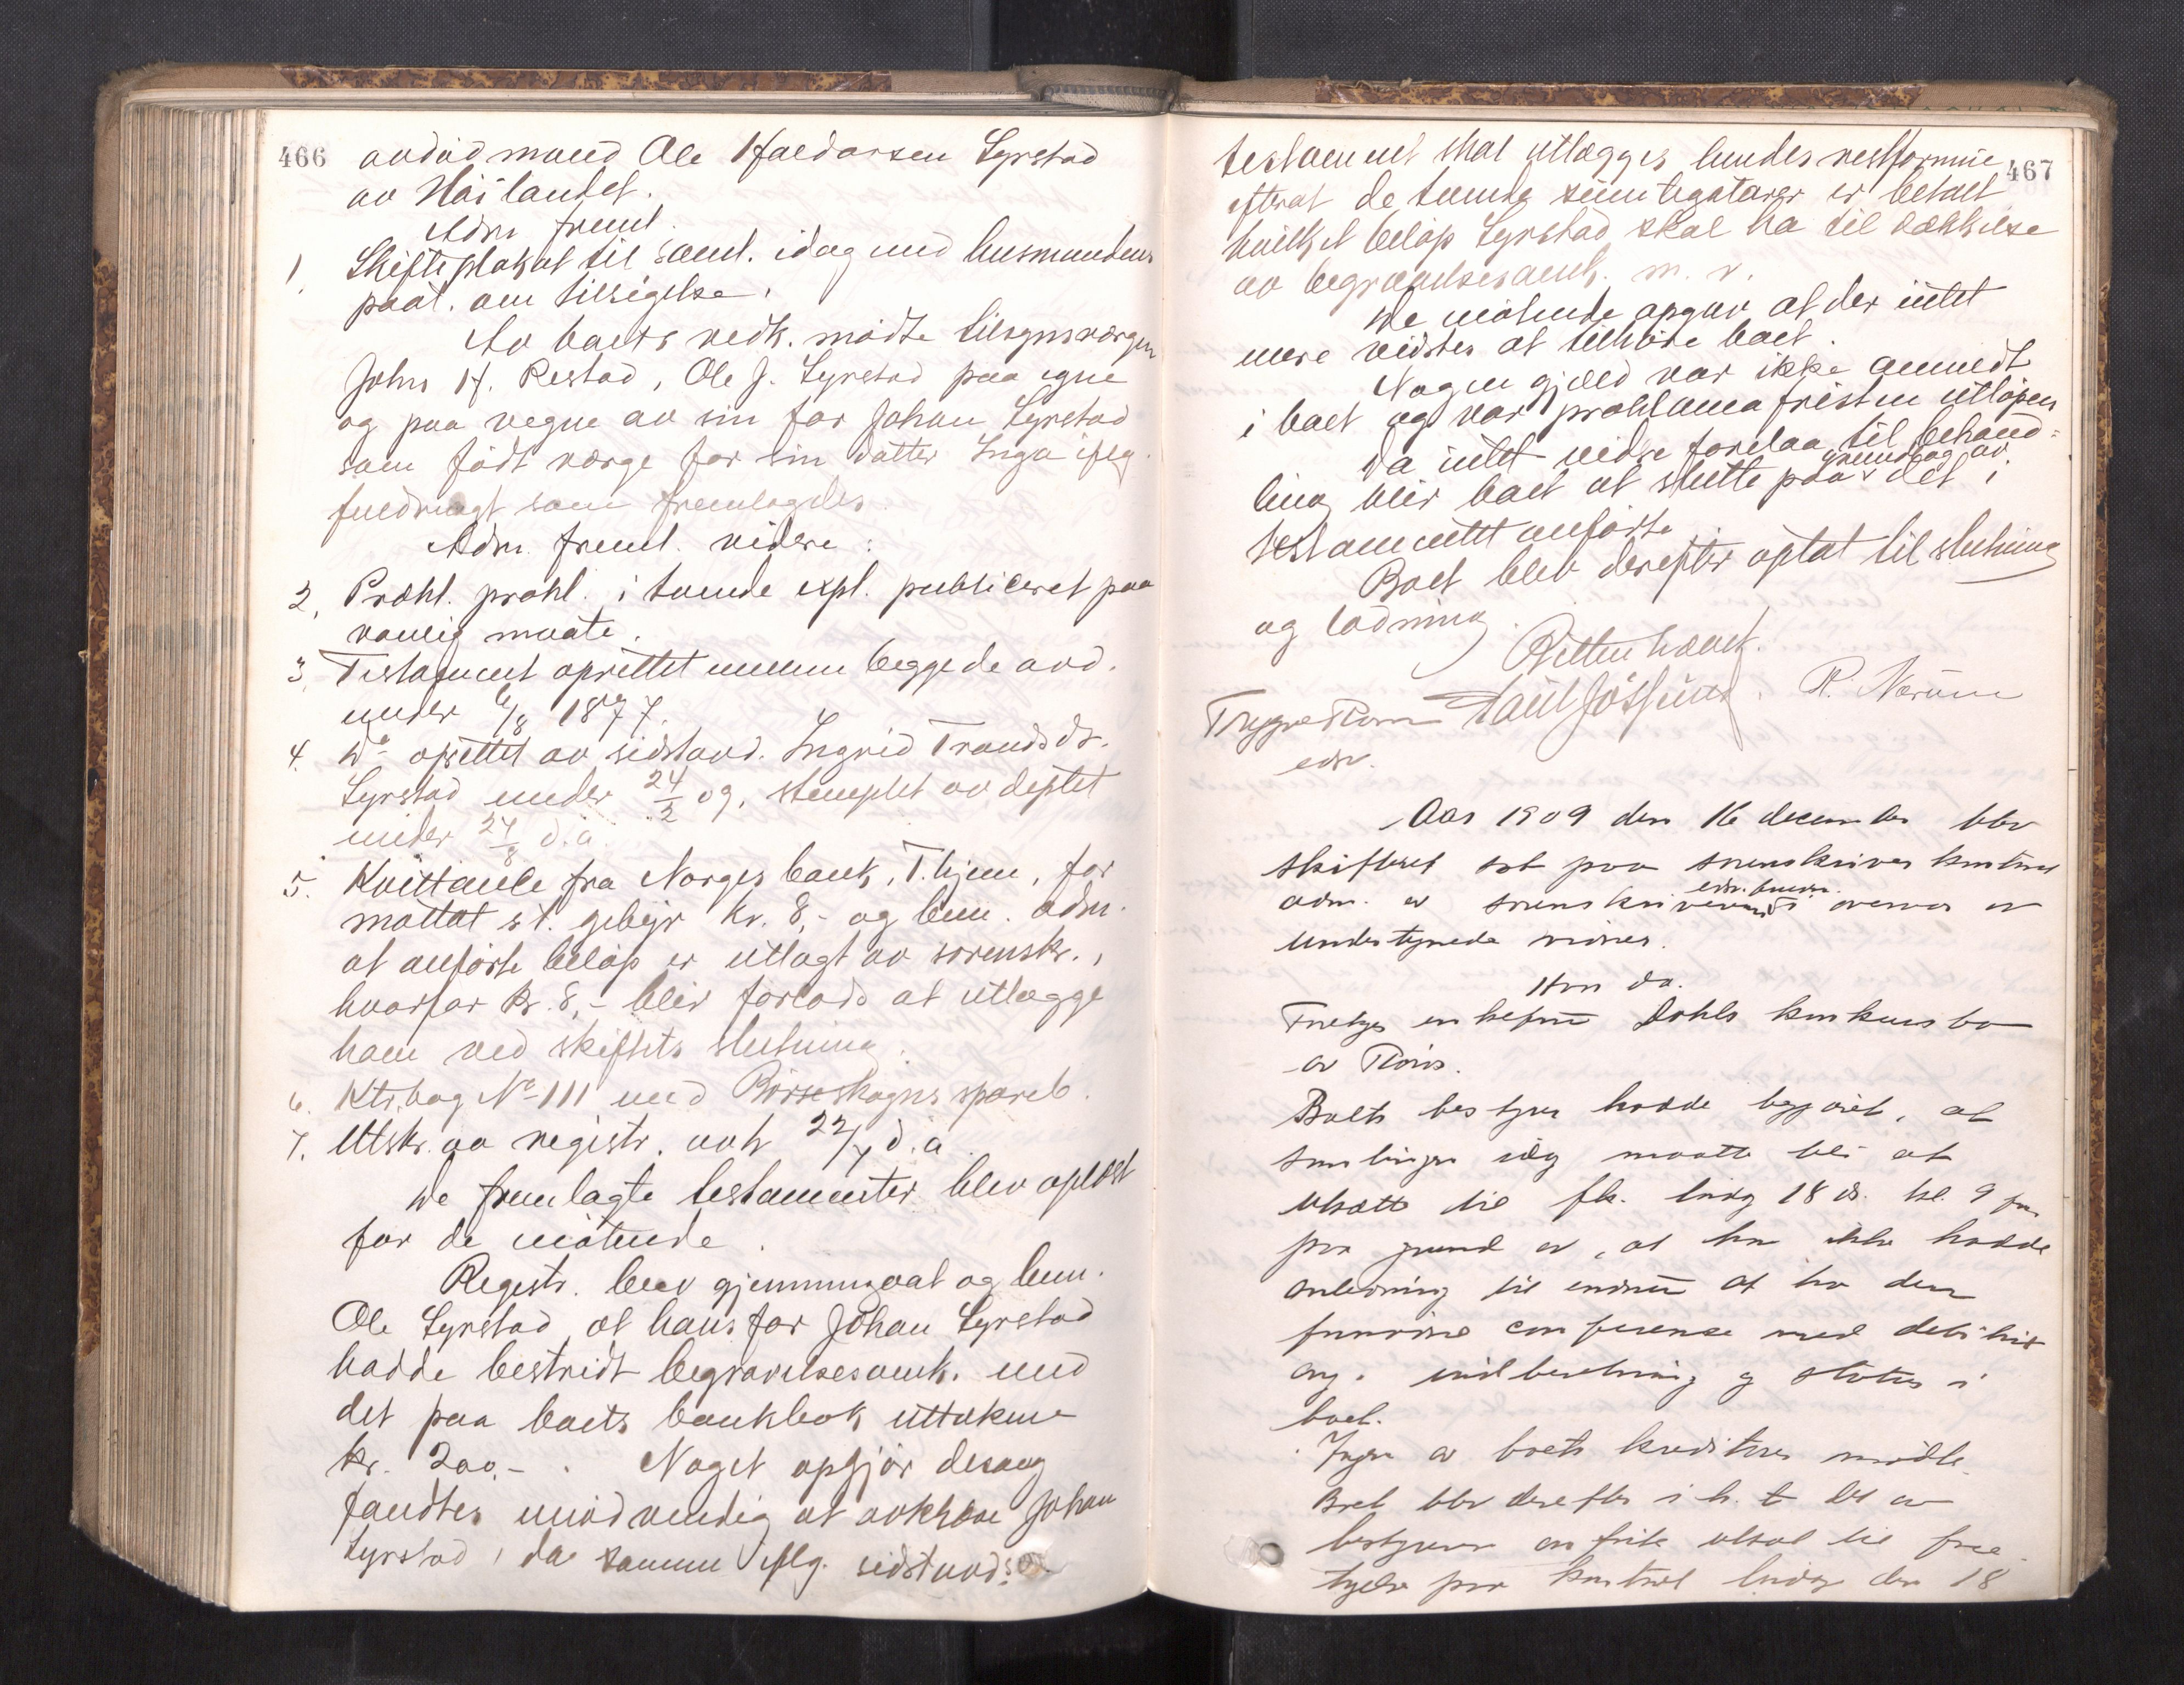 466
avdød mand Ole Haldorsen Syrstad
av Høilandet.
Adm freml.
1. Skifteplakat til saml. idag med lensmandens
paat. om tilsigelse.
Av boets vedk. mødte tilsynsværgen
John H. Restad, Ole J. Syrstad paa egne
og paa vegne av sin far Johan Syrstad
som født værge for sin datter Inga iflg.
fuldmagt som fremlagdes.
Adm. freml. videre:
2, Prækl. prokl. i tvende expl. publiceret paa
vanlig maate.
3, Testament oprettet mellem begge de avd.
under 6/8 1877.
4. Do oprettet av sidstavd. Ingrid Trondsdr.
Syrstad under 24/2 09, stemplet av deptet
under 24/8 d.a.
5. Kvittanse fra Norges bank, T.hjem, for
mottat st. gebyr kr. 8,- og bem. adm.
at anførte beløp er utlagt av sorenskr.,
hvorfor kr. 8,- blir forlods at utlægge
ham ved skiftets slutning.
6. Ktr.bog No 111 med Børseskogns spareb.
7. Utskr. av registr. avh 22/7 d.a.
De fremlagte testamenter blev oplæst
for de møtende.
Registr. blev gjennemgaat og bem.
Ole Syrstad, at hans far Johan Syrstad
hadde bestridt begravelsesomk. med
det paa boets bankbok uttakne
kr. 200,- . Noget opgjør desang
fandtes unødvendig at avkræve Johan
Syrstad, da samme iflg. sidstavds.
467
testament skal utlægges hendes restformue
efterat de tvende sum legatarer er betalt
hvilket beløp Syrstad skal ha til dækkelse
av begravelsesomk. m. v.
De møtende opgav at der intet
mere vidstes at tilhøre boet.
Nogen gjæld var ikke anmeldt
i boet og var proklamafristen utløpen
Da intet videre forelaa til behand=
ling blir boet at slutte paa grundlag av det i
testamentet anførte
Boet blev derefter optat til slutning
og lodning.
Retten hævet.
Trygve Rom
edsv.
Paul Jøssund. P. Nerum
Aar 1909 den 16 december blev
skifteret sat paa sorenskriver kontoret
adm. av sorenskriverens edsv. fuldm. i overvær av
undertegnede vidner.
Hvor da.
Foretoges enkefru Dahls konkursbo
av Roøs.
Boets bestyrer hadde begjæret, at
samlingen idag maatte bli at
utsætte til fk. lørdag 18 ds. kl. 9 fm
paa grund av, at han ikke hadde
anledning til endnu at ha den
fornødne conferense med debitrix
ang. indberetning og status i
boet.
Ingen av boets kreditorer mødte.
Boet blev derefter i h. t. det av
bestyreren anførte utsat til fore-
tagelse paa kontoret lørdag den 18